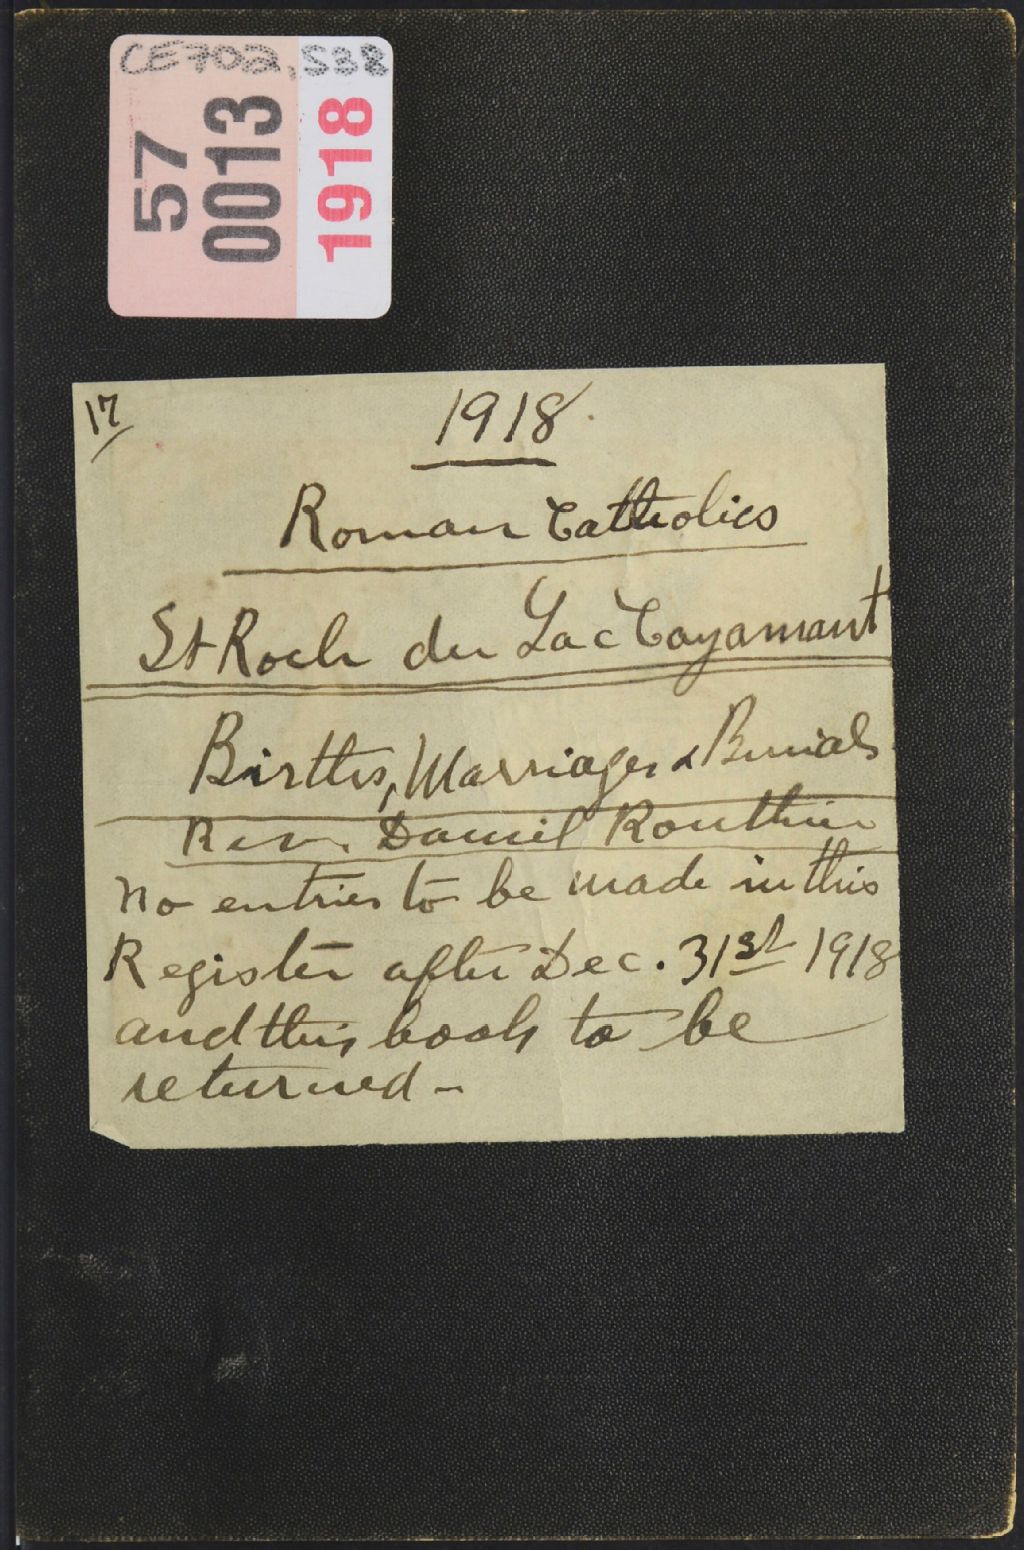 CE702,S38
57
0013
1918
17
1918
Roman Catholics
St Roch du Lac Cayamant
Births, Marriages & Burials
Rev. Daniel Routhier
No entries to be made in this
Register after Dec. 31st 1918
and this book to be
returned -